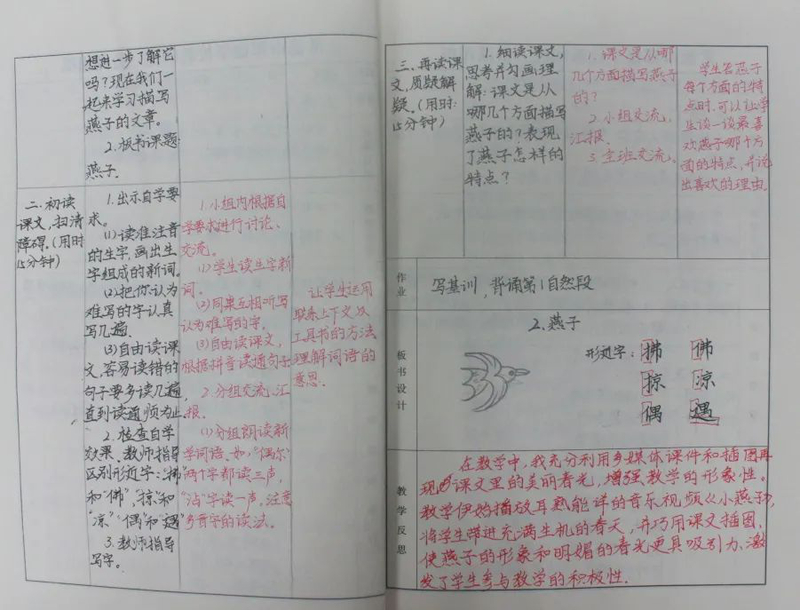 想进一步了解它
吗？现在我们一
起来学习描写
燕子的文章。
2.板书课题：
燕子.
二.初读
课文,扫清
障碍.(用时
15分钟)
1.出示自学要
求。
(1)读准注音
的生字,画出生
字组成的新词。
(2)把你认为
难写的字认真
写几遍.
(3)自由读课
文,容易读错的
句子要多读几遍,
直到读通顺为止.
2.检查自学
效果、教师指导
区别形近字："拂"
和"佛","掠"和
"凉""偶"和"遇"
3.教师指导
写字。
1.小组内根据自
学要求进行讨论、
交流。
(1)学生读生字新
词。
(2)同桌互相听写
认为难写的字。
(3)自由读课文,
根据拼音读通句子
2.分组交流、汇
报.
(1)分组朗读新
学词语.如,"偶尔"
两个字都读三声,
"沾"字读一声,注意
多音字的读法。
让学生运用
联系上下文及
工具书的方法
理解词语的
意思.
三、再读课
文,质疑解
疑。(用时:
15分钟)
1.细读课文,
思考并勾画理
解：课文是从
哪几个方面描写
燕子的？表现
了燕子怎样的
特点？
1.课文是从哪
几个方面描写燕子
的？
2.小组交流,
汇报.
3.全班交流.
学生答燕子
每个方面的特
点时,可以让学
生谈一谈最喜
欢燕子哪个方
面的特点,并说
出喜欢的理由.
作业
写基训,背诵第1自然段
板书设计
2.燕子
形近字：拂 佛
掠 凉
偶 遇
教学反思
在教学中,我充分利用多媒体课件和插图再
现了课文里的美丽春光,增强教学的形象性。
教学伊始播放耳熟能详的音乐视频《小燕子》,
将学生带进充满生机的春天,并巧用课文插图,
使燕子的形象和明媚的春光更具吸引力,激
发了学生参与教学的积极性.